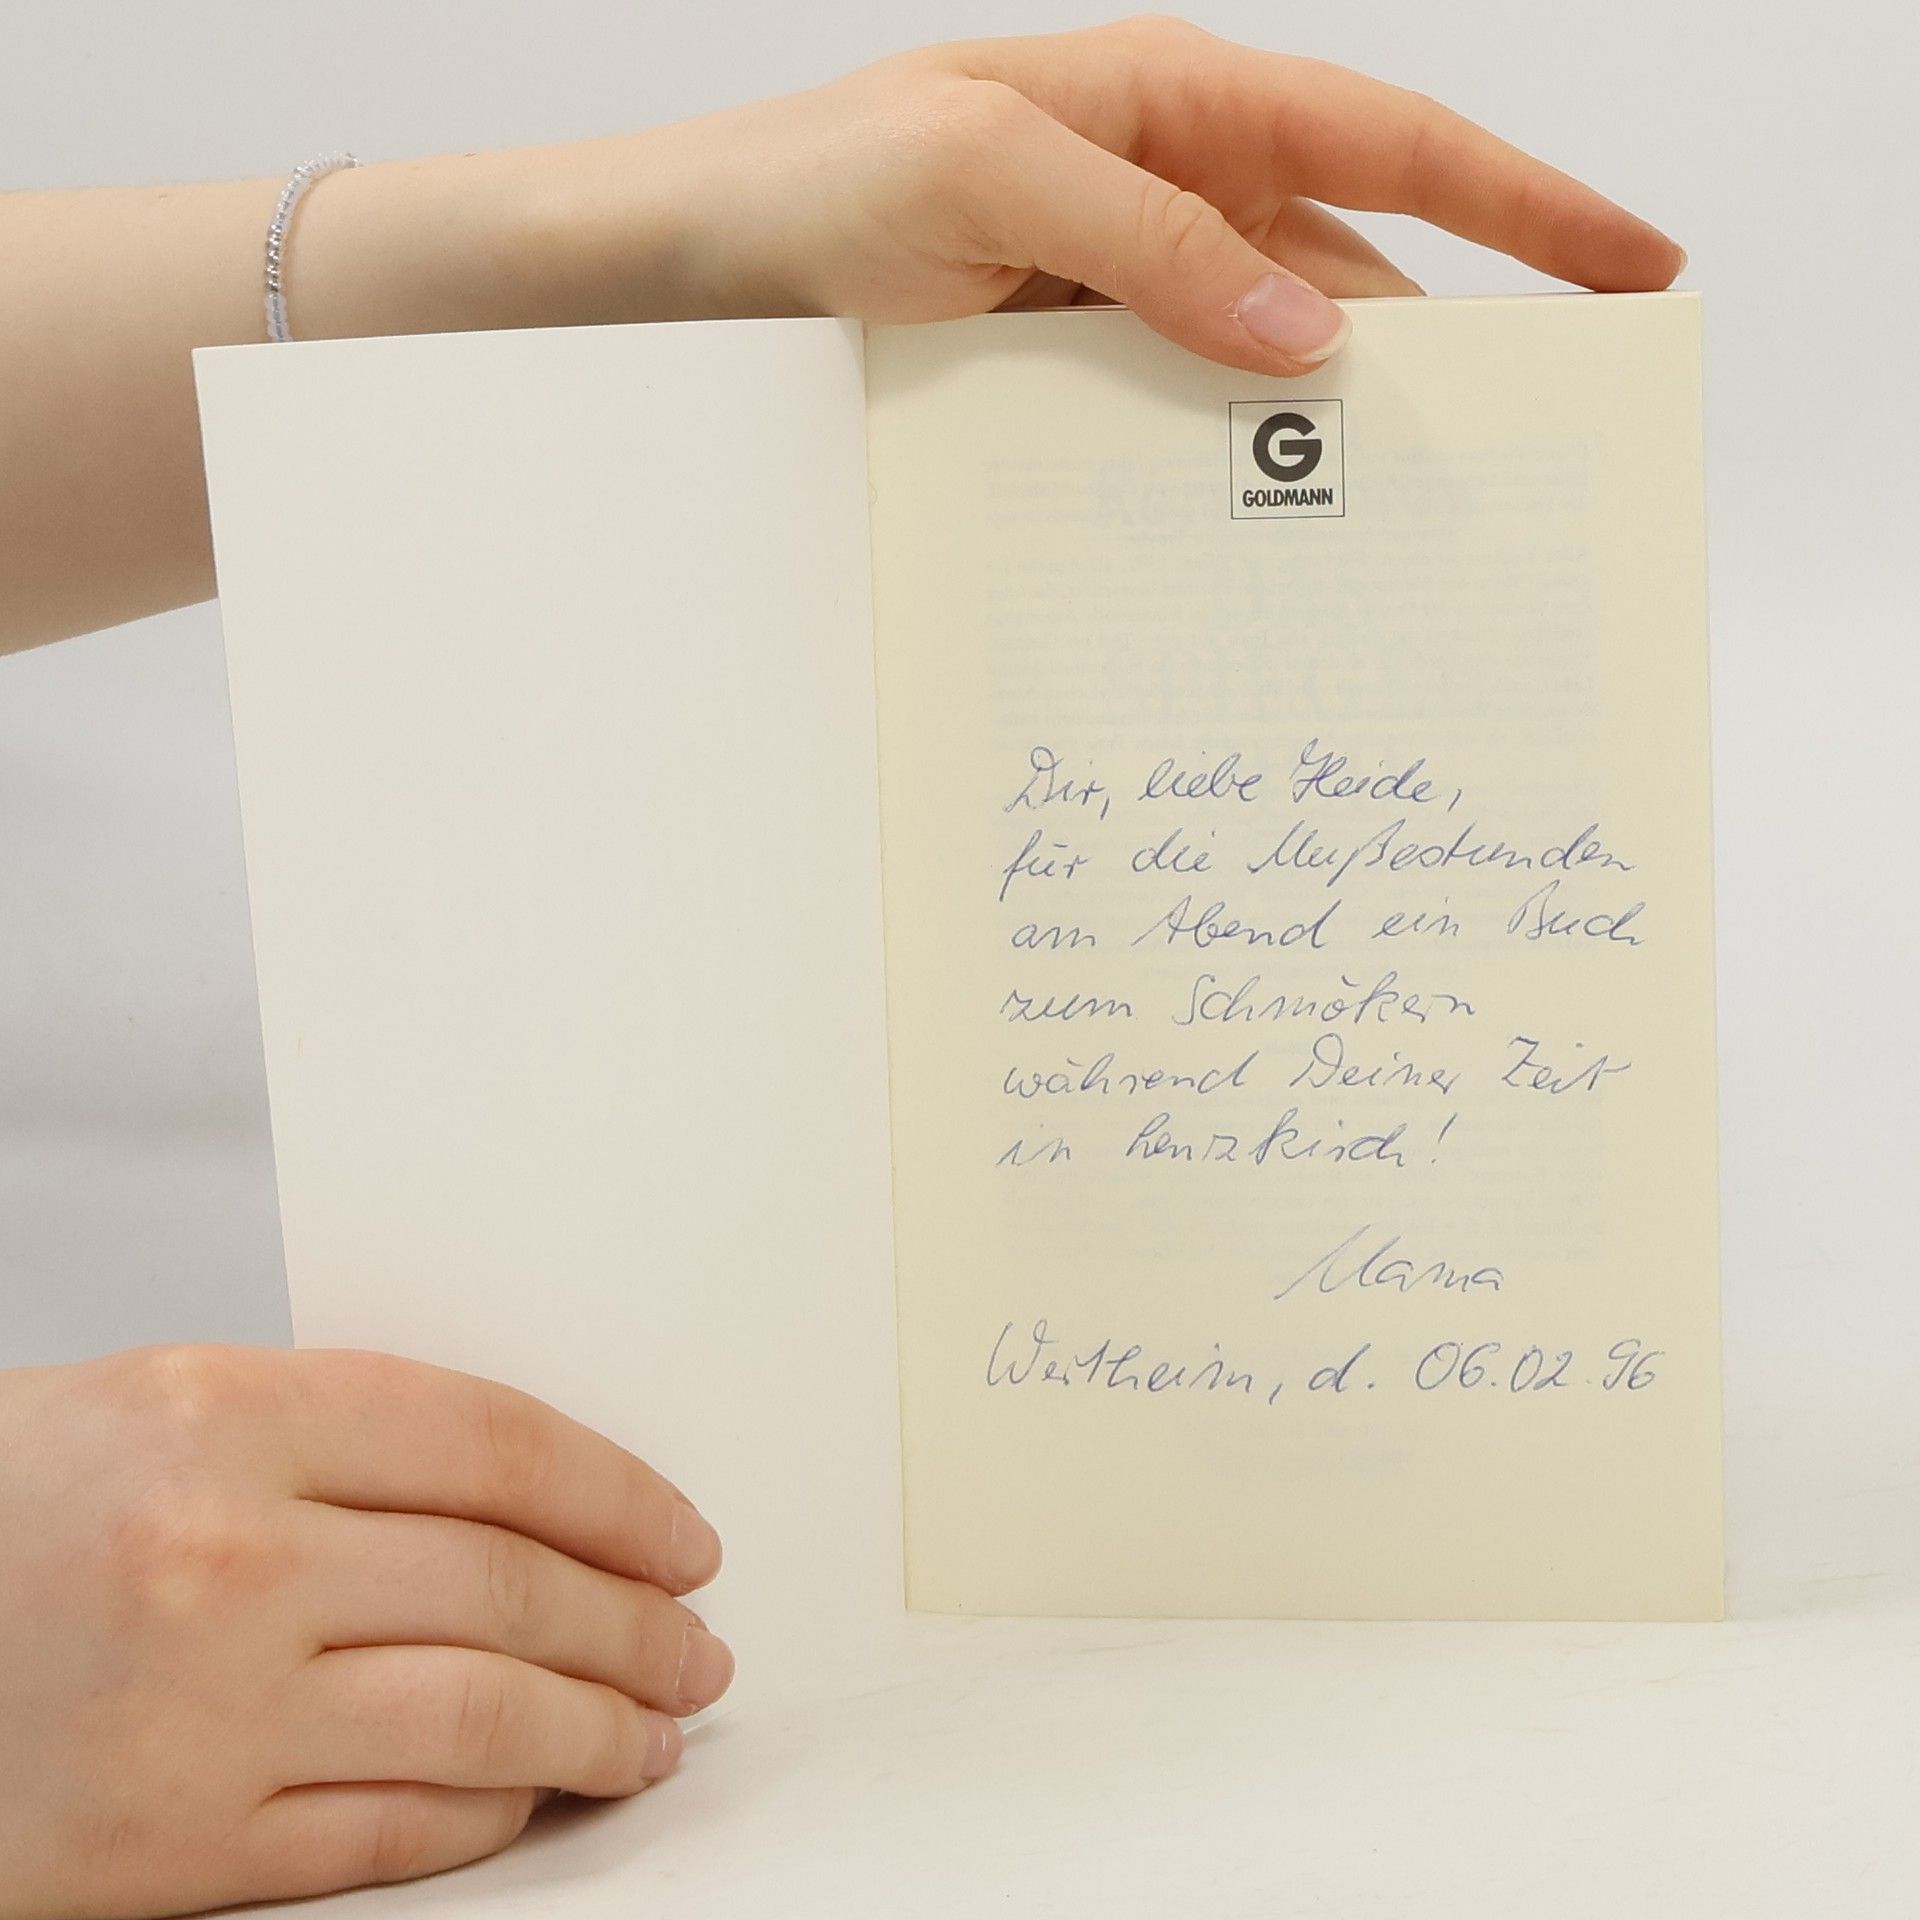 G
GOLDMANN
Dir, liebe Heide,
für die Mußestunden
am Abend ein Buch
zum Schmökern
während Deiner Zeit
in Lenzkirch!
Mama
Wertheim, d. 06.02.96